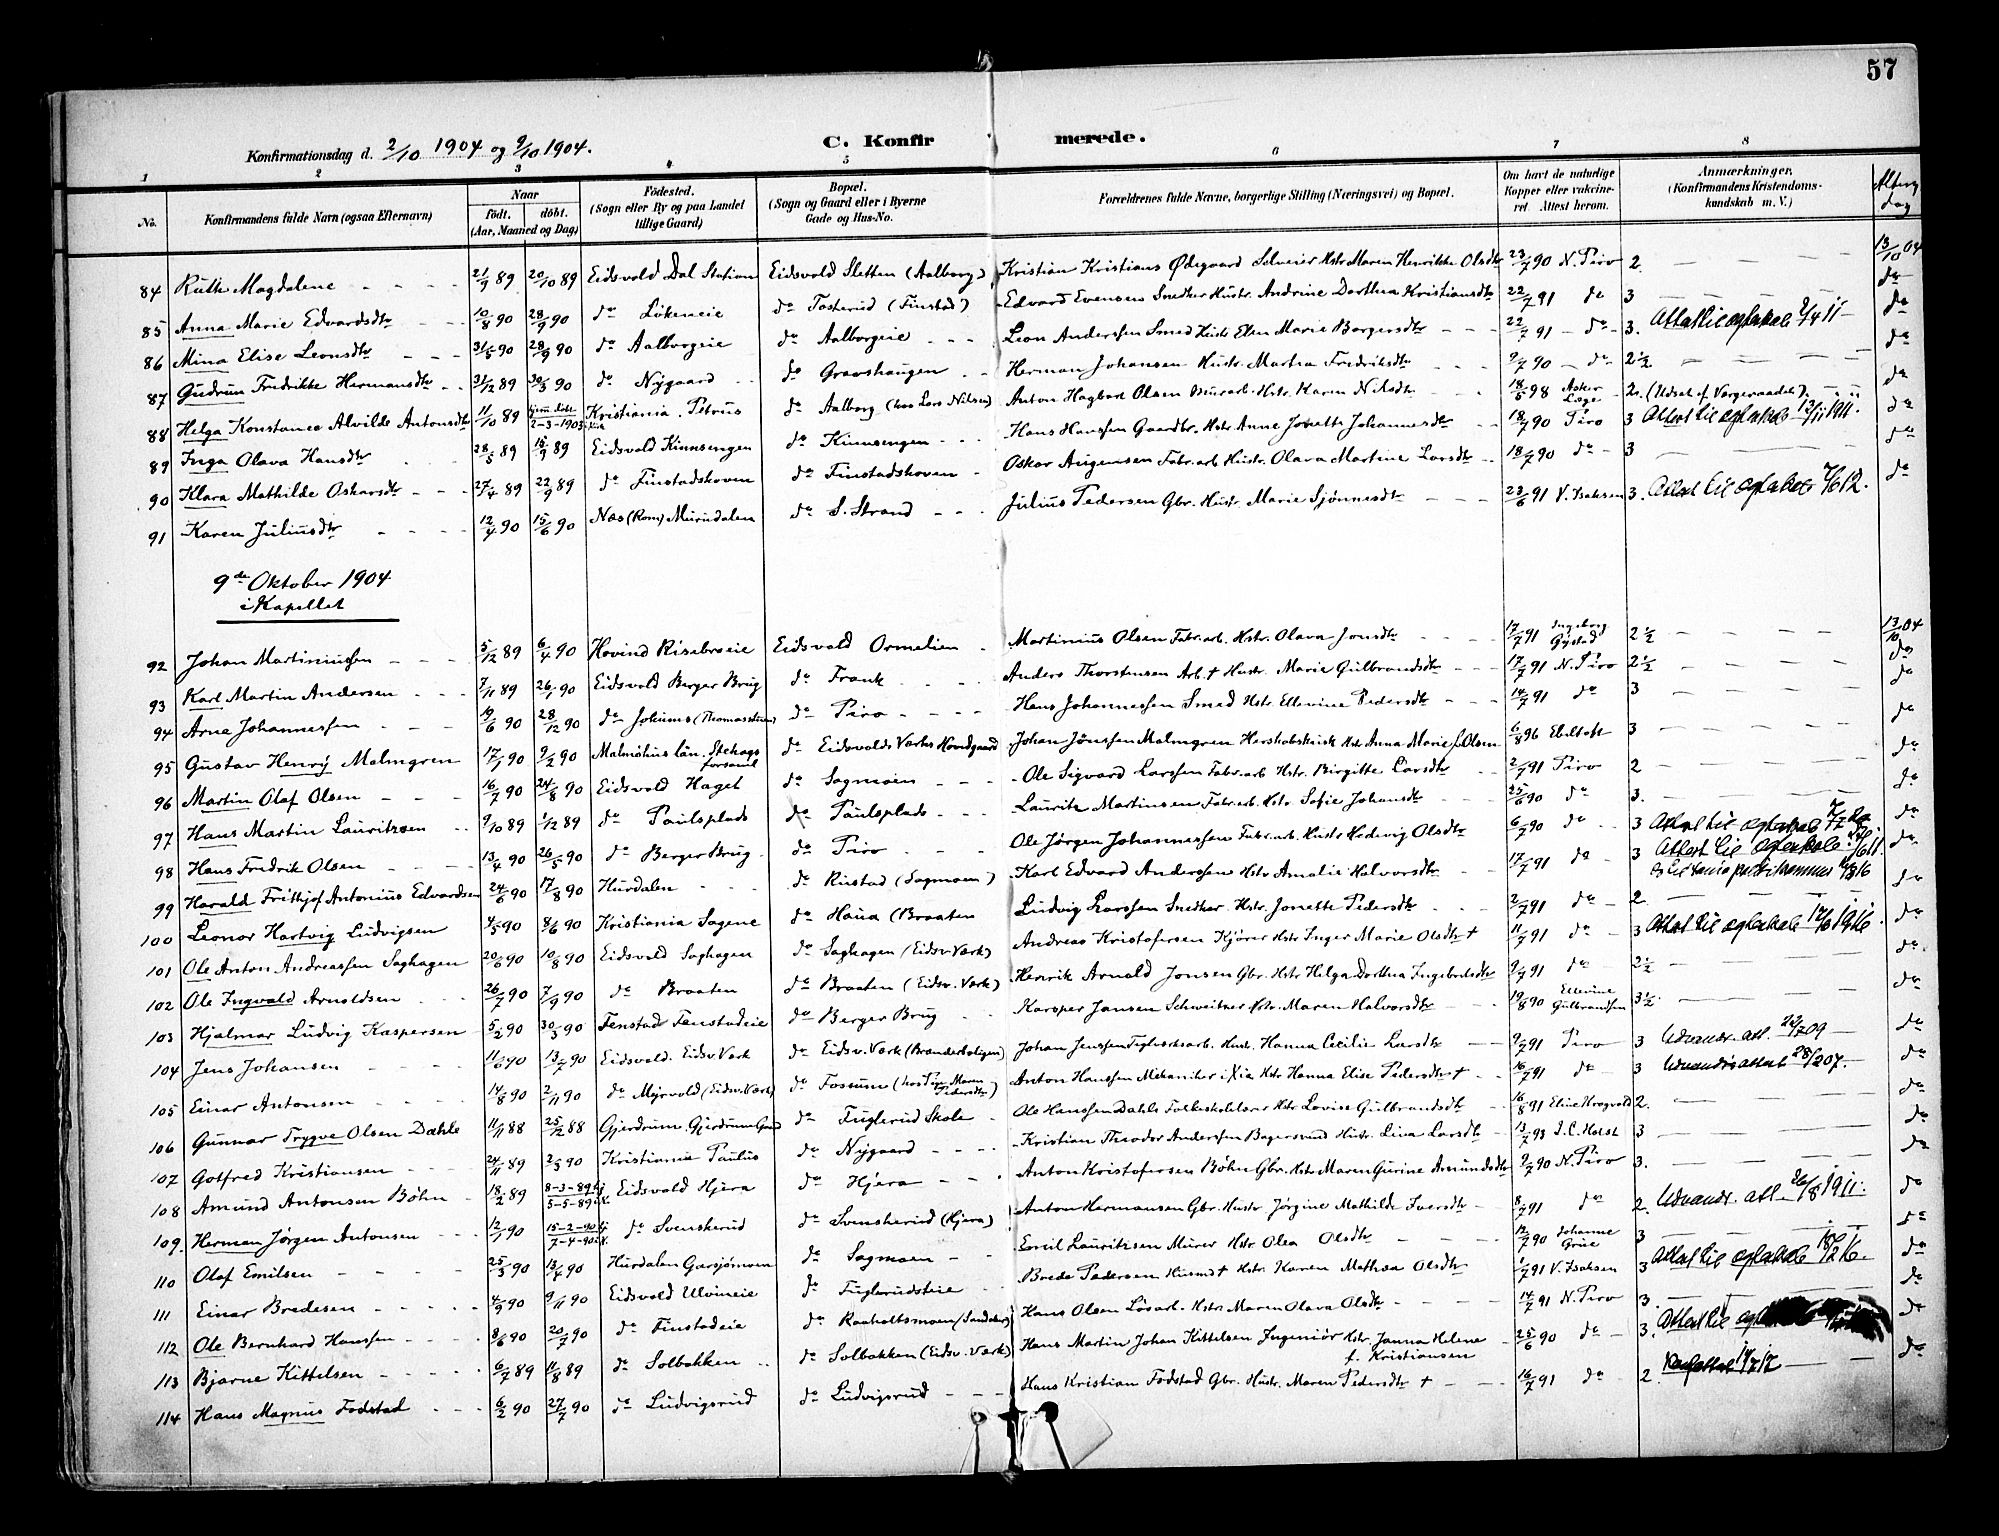 57
Konfirmationsdag d. 2/10 1904 og 9/10 1904.
C. Konfirmerede.
1 2 3 4 5 6 7 8
No. Konfirmandens fulde Navn (ogsaa Efternavn) Naar født. døbt. (Aar, Maaned og Dag) Fødested. (Sogn eller By og paa Landet tillige Gaard) Bopæl. (Sogn og Gaard eller i Byerne Gade og Hus-No. Forældrenes fulde Navne, borgerlige Stilling (Næringsvei) og Bopæl. Om havt de naturlige Kopper eller vakcineret. Attest herom. Anmærkninger, (Konfirmandens Kristendomskundskab m. V.)
84 Ruth Magdalene 21/9 89 20/10 89 Eidsvold Dal Station Eidsvold Sletten (Aalborg) Kristian Kristians Ødegaard Hstr Maren Henrikke Olsdtr 23/7 90 N. Piro 2 13/10 04
85 Anna Marie Edvardsdtr 10/8 90 28/9 90 do Løkeneie do Tosterud (Finstad) Edvard Evensen Snedker Hustr. Andrine Dorthea Kristiansdtr 22/7 91 do 3 do
86 Mina Elise Leonsdtr 31/5 90 28/9 90 do Aalborgeie do Aalborgeie Leon Anderssen Smed Hustr Ellen Marie Borgersdtr 22/7 91 do 3. do
87 Gudrun Fredrikke Hermansdtr 31/12 89 30/3 90 do Nygaard do Gravshaugen Herman Johansen Hustr. Martha Fredriksdtr 9/7 90 do 2½ do
88 Helga Konstance Alvilde Antonsdtr 11/10 89 2-3-1903 Kristiania. Petrus do Aalborg (hos Lars Nilsen) Anton Hagbart Olsen Murarb. Hstr. Karen Nilsdtr 18/5 98 Asker Læge 2. (Udsat af Vergeraadet) do
89 Inga Olava Hansdtr 28/5 89 15/9 89 Eidsvold Kinnsengen do Kinnsengen Hans Hanssen Gaardbr. Hstr. Anne Jonette Johannesdtr 18/7 90 Piro 3 do
90 Klara Mathilde Oskarsdtr 27/4 89 22/9 89 do Finstadskoven do Finstadskoven Oskar Augensen Fabr.arb Hustr. Olava Martine Larsdtr 18/7 90 do 3 do
91 Karen Juliusdtr 12/4 90 15/6 90 Næs (Rom) Murudalen do S. Strand Julius Pedersen Gbr. Hustr. Marie Sjønnesdtr 23/6 91 V. Isaksen 3. do
9de Oktober 1904
i Kapellet
92 Johan Martiniussen 5/12 89 6/4 90 Hovind Risebroeie Eidsvold Ormelien Martinius Olsen Fabr.arb. Hstr. Olava Jonsdtr 17/7 91 Ingeborg Gystad 2½ 13/10 04
93 Karl Martin Andersen 7/11 89 26/1 90 Eidsvold Berger Brug do Frank Anders Thorstensen Arb. † Hustr. Marie Gulbrandsdtr 17/7 91 N. Piro 2½ do
94 Arne Johannessen 19/6 90 28/12 90 do do Piro Hans Johannessen Smed Hstr. Ellevine Pedersdtr 14/7 91 do 3 do
95 Gustav Henry Malmgren 17/1 90 9/2 90 Malmöhus län. Stehags forsaml do Eidsvolds Værks Hovedgaard Johan Jönssen Malmgren Herskabskusk Hstr Anna Marie f. Olsen 6/8 96 Ebeltoft 3 do
96 Martin Olaf Olsen 16/7 90 24/8 90 Eidsvold Haget do Sagmoen Ole Sigvard Larssen Fabr.arb Hstr. Birgitte Larsdtr 2/7 91 Piro 2 do
97 Hans Martin Lauritzsen 9/10 89 1/12 89 do Paulsplads do Paulsplads Lauritz Martinsen Fabr.arb. Hstr Sofie Johansdtr 25/6 90 do 3. do
98 Hans Fredrik Olsen 13/4 90 26/5 90 do Berger Brug do Piro Ole Jørgen Johannessen Fabr.arb. Hustr Hedevig Olsdtr 6/7 90 do 3 do
99 Harald Frithjof Antonius Edvardsen 24/6 90 17/8 90 Hurdalen do Rustad (Sagmoen) Karl Edvard Anderssen Hstr Amalie Halvorsdtr 17/7 91 do 3 do
100 Leonor Hartvig Ludvigsen 4/5 90 8/6 90 Kristiania Sagene do Haua (Braaten Ludvig Larssen Snedker. Hstr. Jonette Pedersdtr 2/7 91 do 2. do
101 Ole Anton Andreassen Saghagen 20/6 90 10/8 90 Eidsvold Saghagen do Saghagen (Eidsv. Værk) Andreas Kristofersen Kjører Hstr Inger Marie Olsdtr † 11/7 91 do 3 do
102 Ole Ingvald Arnoldsen 26/7 90 7/9 90 do Braaten do Braaten (Eidsv. Værk) Henrik Arnold Jonsen Gbr. Hstr. Helga Dorthea Ingebretsdtr 9/7 91 do 2½ do
103 Hjalmar Ludvig Kaspersen 5/2 90 30/3 90 Fenstad Fenstadeie do Berger Brug Kasper Jansen Schweitzer Hstr. Maren Halvorsdtr 19/8 90 Ellevine Gulbrandsen 3½ do
104 Jens Johansen 11/6 90 13/7 90 Eidsvold. Eidsv. Værk do Eidsv. Værk (Brænderboligen) Johan Jenssen Teglværksarb. Hustr. Hanna Cecilie Larsdtr 9/7 91 Piro 3 Udvandr. att. 22/7 09 do
105 Einar Antonsen 14/8 90 2/11 90 do Myrvold (Eidsv. Værk) do Fossum (hos Maren Pedersdtr) Anton Hanssen Mekaniker i Xia Hstr Hanna Elise Pedersdtr † 16/7 91 do 3 Udvandrs attest 28/2 07. do
106 Gunnar Trygve Olsen Dæhle 11/11 88 25/12 88 Gjerdrum. Gjerdrum Gaard do Fuglerud Skole Ole Hanssen Dæhle Folkeskolelærer Hstr. Lovise Gulbrandsdtr 16/8 91 Eline Kragvold 2. do
107 Gotfred Kristiansen 24/11 89 2/3 90 Kristiania Paulus do Nygaard Kristian Theodor Anderssen Bagersvend Hustr. Lina Larsdtr 13/7 93 J. C. Holst 3 do
108 Amund Antonsen Böhn 18/2 89 8-3-89 hj 5-5-89 i K. Eidsvold Hjera do Hjera Anton Kristofersen Böhn Gbr. Hstr Maren Gurine Amundsdtr 9/7 90 N. Piro 3. do
109. Herman Jørgen Antonsen 12/1 90 15-2-90 hj 7-4-90 i K. do Svenskerud do Svenskerud (Hjera) Anton Hermansen Gbr. Hustr. Jørgine Mathilde Iversdtr 8/7 91 do 2. Udvandr. att. 26/8 1911. do
110 Olaf Emilsen 25/3 90 13/4 90 Hurdalen Garsjømoen do Sagmoen Emil Lauritzsen Murer Hstr. Olea Olsdtr 12/7 90 Johanne Grue 3 do
111 Einar Bredesen 4/9 90 9/11 90 Eidsvold Ulvineie do Fuglerudsteie Brede Pedersen Husmd † Hstr Karen Mathea Olsdtr 1/7 91 V. Isaksen 3 do
112 Ole Bernhard Hanssen 8/6 90 20/7 90 do Finstadeie do Raaholtsmoen (Sandaker) Hans Olsen Løsarb. Hstr. Maren Olava Olsdtr 14/7 91 N. Piro 3. do
113 Bjarne Kittelsen 6/7 89 11/8 89 do Solbakken do Solbakken (Eidsv. Værk) Hans Martin Johan Kittelsen Ingeniør Hstr. Janna Helene f. Kristiansen 25/6 90 do 3. do
114 Hans Magnus Fodstad 6/2 90 27/7 90 do Ludvigsrud do Ludvigsrud Hans Kristian Fodstad Gbr. Hustr. Maren Pedersdtr † 16/7 91 do 2. do